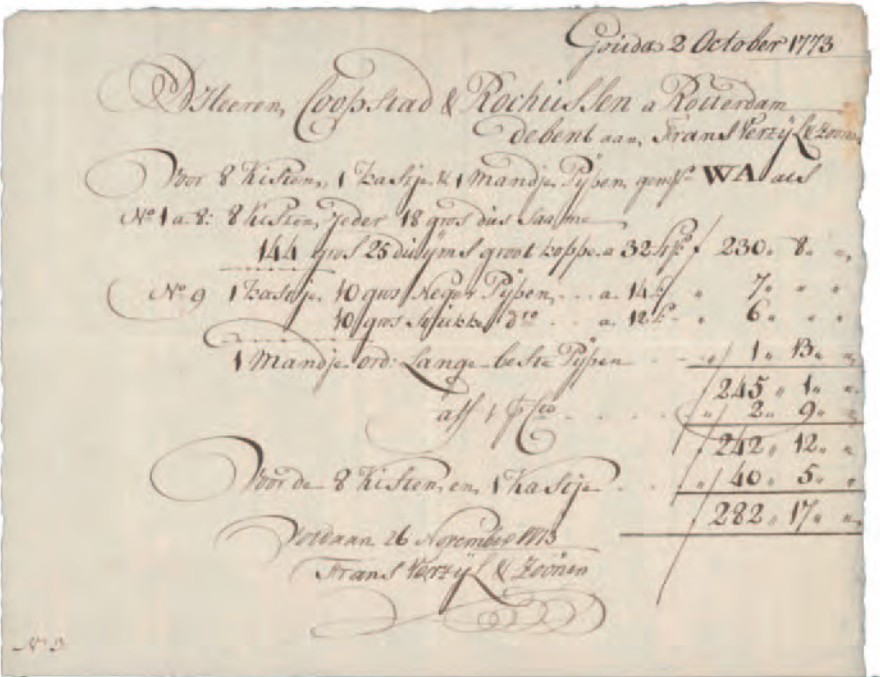 Gouda 2 October 1773
D'Heeren, Coopstad & Rochussen a Rotterdam
debent aan, Frans Verzÿl & Zoonen
Voor 8 Kisten, 1 Kastje & 1 Mandje Pÿpen, gem^t WA als
N^o 1 a 8: 8 Kisten, Jeder 18 gros dus Saame
144 gros 25 duÿms groot koppe a 32 ƒ 230 " 8 " "
N^o 9 1 Kastje 10 gros Neger Pÿpen, . . . a. 14 " 7 " " "
10 gros d^to . . a. 12 " 6 " " "
1 Mandje ord: Lange beste Pÿpen . . . " 1 " 13 " "
245 " 1 " "
aff 1 p C^to . . . . " 2 " 9 " "
242 " 12 " "
Voor de 8 Kisten, en, 1 Kastje . . . 40 " 5 " "
282 " 17 " "
Voldaan 26 November 1773
Frans Verzÿl & Zoonen
N^o 3